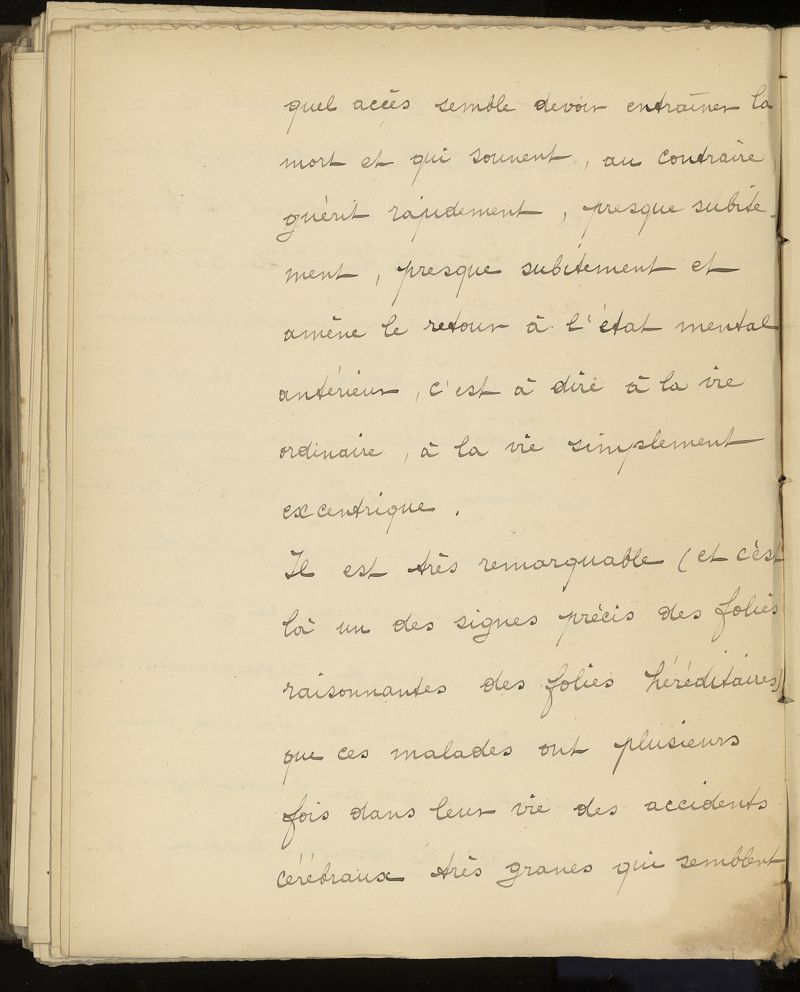 quel accès semble devoir entraîner la
mort et qui souvent, au contraire,
guérit rapidement, presque subite-
ment, presque subitement et
amène le retour à l'état mental
antérieur, c'est à dire à la vie
ordinaire, à la vie simplement
excentrique.
Il est très remarquable (et c'est
là un des signes précis des folies
raisonnantes des folies héréditaires)
que ces malades ont plusieurs
fois dans leur vie des accidents
cérébraux très graves qui semblent